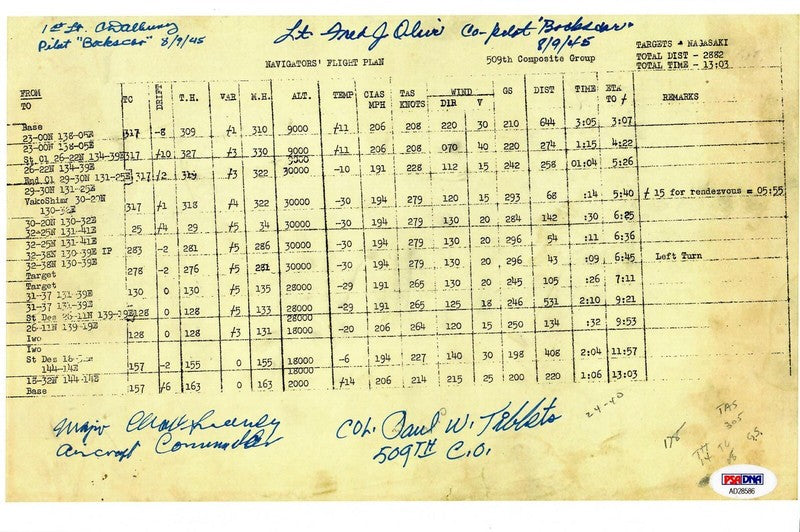 1st Lt. C D Albury
Lt Fred J Olivi Co-pilot "Bockscar"
Pilot "Bockscar" 8/9/45
8/9/45
TARGETS - NAGASAKI
TOTAL DIST - 2882
TOTAL TIME - 13:03
NAVIGATORS' FLIGHT PLAN
509th Composite Group
FROM
TO TC DRIFT T.H. VAR M.H. ALT. TEMP CIAS MPH TAS KNOTS WIND DIR V GS DIST TIME ETA TO REMARKS
Base
23-00N 138-05E 317 -8 309 /1 310 9000 /11 206 208 220 30 210 644 3:05 3:07
23-00N 138-05E
St Cl 26-22N 134-39E 317 /10 327 /3 330 9000 /11 206 208 070 40 220 274 1:15 4:22
26-22N 134-39E
End Cl 29-30N 131-25E 317 /2 319 /3 322 30000 -10 191 228 112 15 242 258 01:04 5:26
29-30N 131-25E
YakoShima 30-20N
130-32E 317 /1 318 /4 322 30000 -30 194 279 120 15 293 68 :14 5:40 / 15 for rendezvous = 05:55
30-20N 130-32E
32-25N 131-41E 25 /4 29 /5 34 30000 -30 194 279 130 20 284 142 :30 6:25
32-25N 131-41E
32-38N 130-39E IP 283 -2 281 /5 286 30000 -30 194 279 130 20 296 54 :11 6:36
32-38N 130-39E
Target 278 -2 276 /5 281 30000 -30 194 279 130 20 296 43 :09 6:45 Left Turn
Target
31-37 131-39E 130 0 130 /5 135 28000 -29 191 265 130 20 245 105 :26 7:11
31-37 131-39E
St Des 26-11N 139-19E 128 0 128 /5 133 28000 -29 191 265 125 18 246 531 2:10 9:21
26-11N 139-19E
Iwo 128 0 128 /3 131 18000 -20 206 264 120 15 250 134 :32 9:53
Iwo
St Des
144-14E 157 -2 155 0 155 18000 -6 194 227 140 30 198 408 2:04 11:57
144-14E
Base 157 /6 163 0 163 2000 /14 206 214 215 25 200 220 1:06 13:03
Major Chas Sweeney
Aircraft Commander
COL. Paul W. Tibbets
509TH C.O.
24-40
TAS
305
GS.
PSA DNA
AD28586